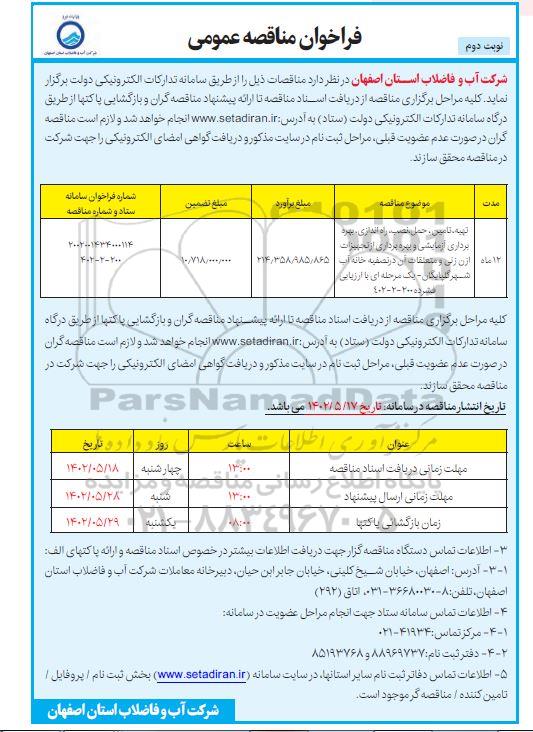 فراخوان مناقصه عمومی
نوبت دوم
شرکت آب و فاضلاب استان اصفهان
شرکت آب و فاضلاب اســتان اصفهان در نظر دارد مناقصات ذیل را از طریق سامانه تدارکات الکترونیکی دولت برگزار
نماید. کلیه مراحل برگزاری مناقصه از دریافت اســناد مناقصه تا ارائه پیشنهاد مناقصه گران و بازگشایی پاکتها از طریق
درگاه سامانه تدارکات الکترونیکی دولت (ستاد) به آدرس: www.setadiran.ir انجام خواهد شد و لازم است مناقصه
گران در صورت عدم عضویت قبلی، مراحل ثبت نام در سایت مذکور و دریافت گواهی امضای الکترونیکی را جهت شرکت
در مناقصه محقق سازند.
مدت
موضوع مناقصه
مبلغ برآورد
مبلغ تضمین
شماره فراخوان سامانه
ستاد و شماره مناقصه
۱۲ ماه
تهیه، تامین، حمل، نصب، راه اندازی، بهره
برداری آزمایشی و بهره برداری از تجهیزات
ازن زنی و متعلقات آن در تصفیه خانه آب
شــهر گلپایگان- یک مرحله ای با ارزیابی
فشرده ۲۰۰-۲-۴۰۲
۲۱۴/۳۵۸/۹۸۵/۸۶۵
۱۰/۷۱۸/۰۰۰/۰۰۰
۲۰۰۲۰۰۱۴۳۴۰۰۰۱۱۴
۴۰۲-۲-۲۰۰
کلیه مراحل برگزاری مناقصه از دریافت اسناد مناقصه تا ارائه پیشــنهاد مناقصه گران و بازگشایی پاکتها از طریق درگاه
سامانه تدارکات الکترونیکی دولت (ستاد) به آدرس: www.setadiran.ir انجام خواهد شد و لازم است مناقصه گران
در صورت عدم عضویت قبلی، مراحل ثبت نام در سایت مذکور و دریافت گواهی امضای الکترونیکی را جهت شرکت در
مناقصه محقق سازند.
تاریخ انتشار مناقصه در سامانه: تاریخ ۱۴۰۲/۵/۱۷ می باشد.
عنوان
ساعت
روز
تاریخ
مهلت زمانی دریافت اسناد مناقصه
۱۳:۰۰
چهارشنبه
۱۴۰۲/۰۵/۱۸
مهلت زمانی ارسال پیشنهاد
۱۳:۰۰
شنبه
۱۴۰۲/۰۵/۲۸
زمان بازگشائی پاکتها
۰۸:۰۰
یکشنبه
۱۴۰۲/۰۵/۲۹
۳- اطلاعات تماس دستگاه مناقصه گزار جهت دریافت اطلاعات بیشتر در خصوص اسناد مناقصه و ارائه پاکتهای الف:
۳-۱- آدرس: اصفهان، خیابان شــیخ کلینی، خیابان جابر ابن حیان، دبیرخانه معاملات شرکت آب و فاضلاب استان
اصفهان، تلفن: ۸-۳۶۶۸۰۰۳۰-۰۳۱، اتاق (۲۹۲)
۴- اطلاعات تماس سامانه ستاد جهت انجام مراحل عضویت در سامانه:
۴-۱- مرکز تماس: ۴۱۹۳۴-۰۲۱
۴-۲- دفتر ثبت نام: ۸۸۹۶۹۷۳۷ و ۸۵۱۹۳۷۶۸
۵- اطلاعات تماس دفاتر ثبت نام سایر استانها، در سایت سامانه (www.setadiran.ir) بخش ثبت نام / پروفایل /
تامین کننده / مناقصه گر موجود است.
شرکت آب و فاضلاب استان اصفهان
ParsNamadData
پایگاه اطلاع رسانی مناقصه و مزایده
۰۲۱-۸۸۳۴۹۶۷۰-۵